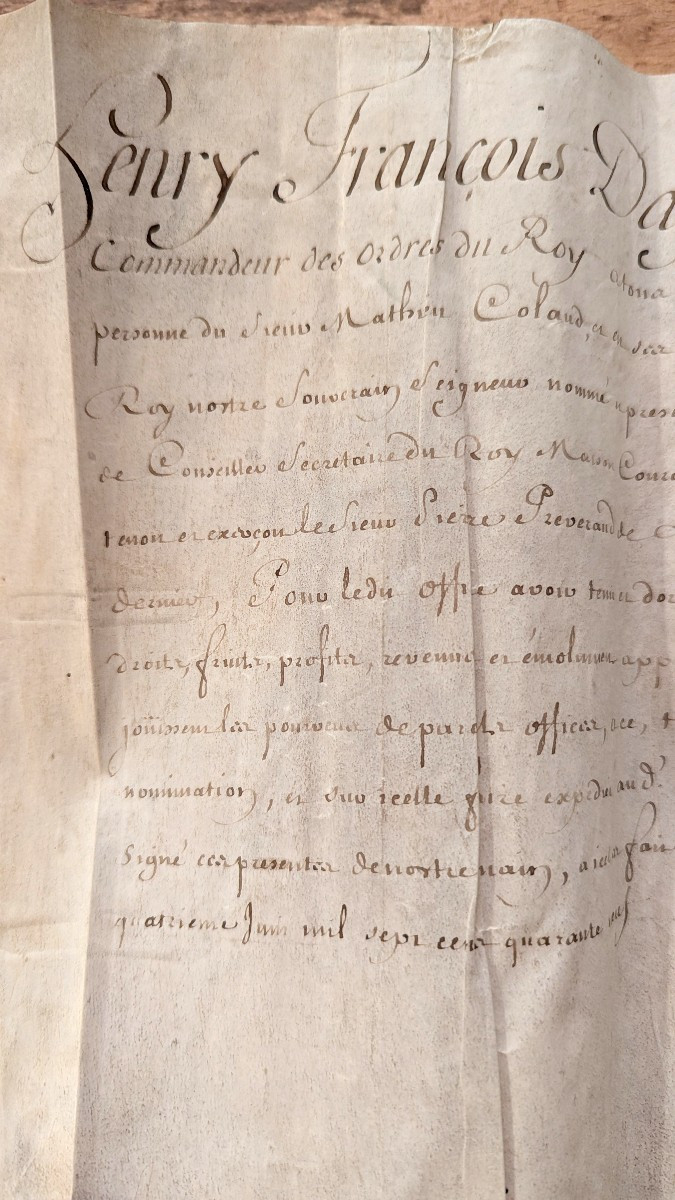 Henry François Da
Commandeur des Ordres du Roy
personne du Sieur Mathieu Coland, et en ses
Roy nostre Souverain Seigneur nommé
de Conseiller Secretaire du Roy Maison Couro
tenoit et exerçoit le Sieur Pierre Preveraud de
dernier, Pour ledit office avoir tenir
droits, fruits, profits, revenus et émolumens app
joüissent les pourveus de pareils offices,
nomination, et sur icelle
signé ces presentes de nostre main, a icelles fait
quatrieme Juin mil sept cens quarante neuf